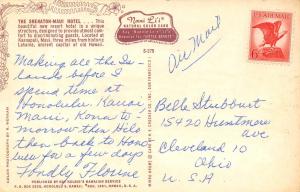 THE SHERATON-MAUI HOTEL . . . This
beautiful new resort hotel is a unique
structure, designed to provide almost comfort
to discriminating guests. Located at
Kaanapali, Maui, three miles from historic
Lahaina, ancient capital of old Hawaii.
Nani Li'i
NATURAL COLOR CARD
S-275
Air Mail
U.S. AIR MAIL
6¢
Making all the Is-
lands before I
spend time at
Honolulu. Kauai
Maui, Kona to-
morrow then Hilo
then - back to Hono
lulu for a few days
Fondly Eloise
Bella Stubbart
15720 Huntmere
ave
Cleveland 10
Ohio
U.S.A
PUBLISHED BY RAY HELBIG'S HAWAIIAN SERVICE
P. O. BOX 2835, HONOLULU 3, HAWAII